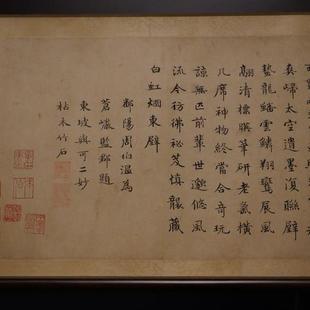 真歸太空遺墨復聯壁
蟄龍蟠雲鱗翔鸞展風
翮清標映華研老氣橫
几席神物終當合奇玩
諒無匹前輩世邈悠風
流今彷彿祕笈慎襲藏
白虹烟東壁
鄱陽周伯溫為
蒼巖監郡題
東坡與可二妙
枯木竹石